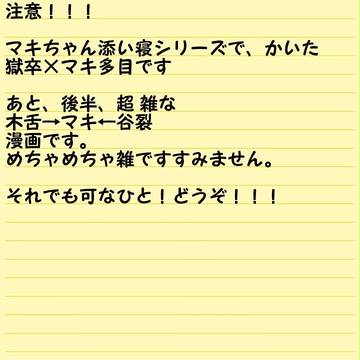 注意！！！
マキちゃん添い寝シリーズで、かいた
獄卒×マキ多目です
あと、後半、超 雑な
木舌→マキ←谷裂
漫画です。
めちゃめちゃ雑ですすみません。
それでも可なひと！どうぞ！！！